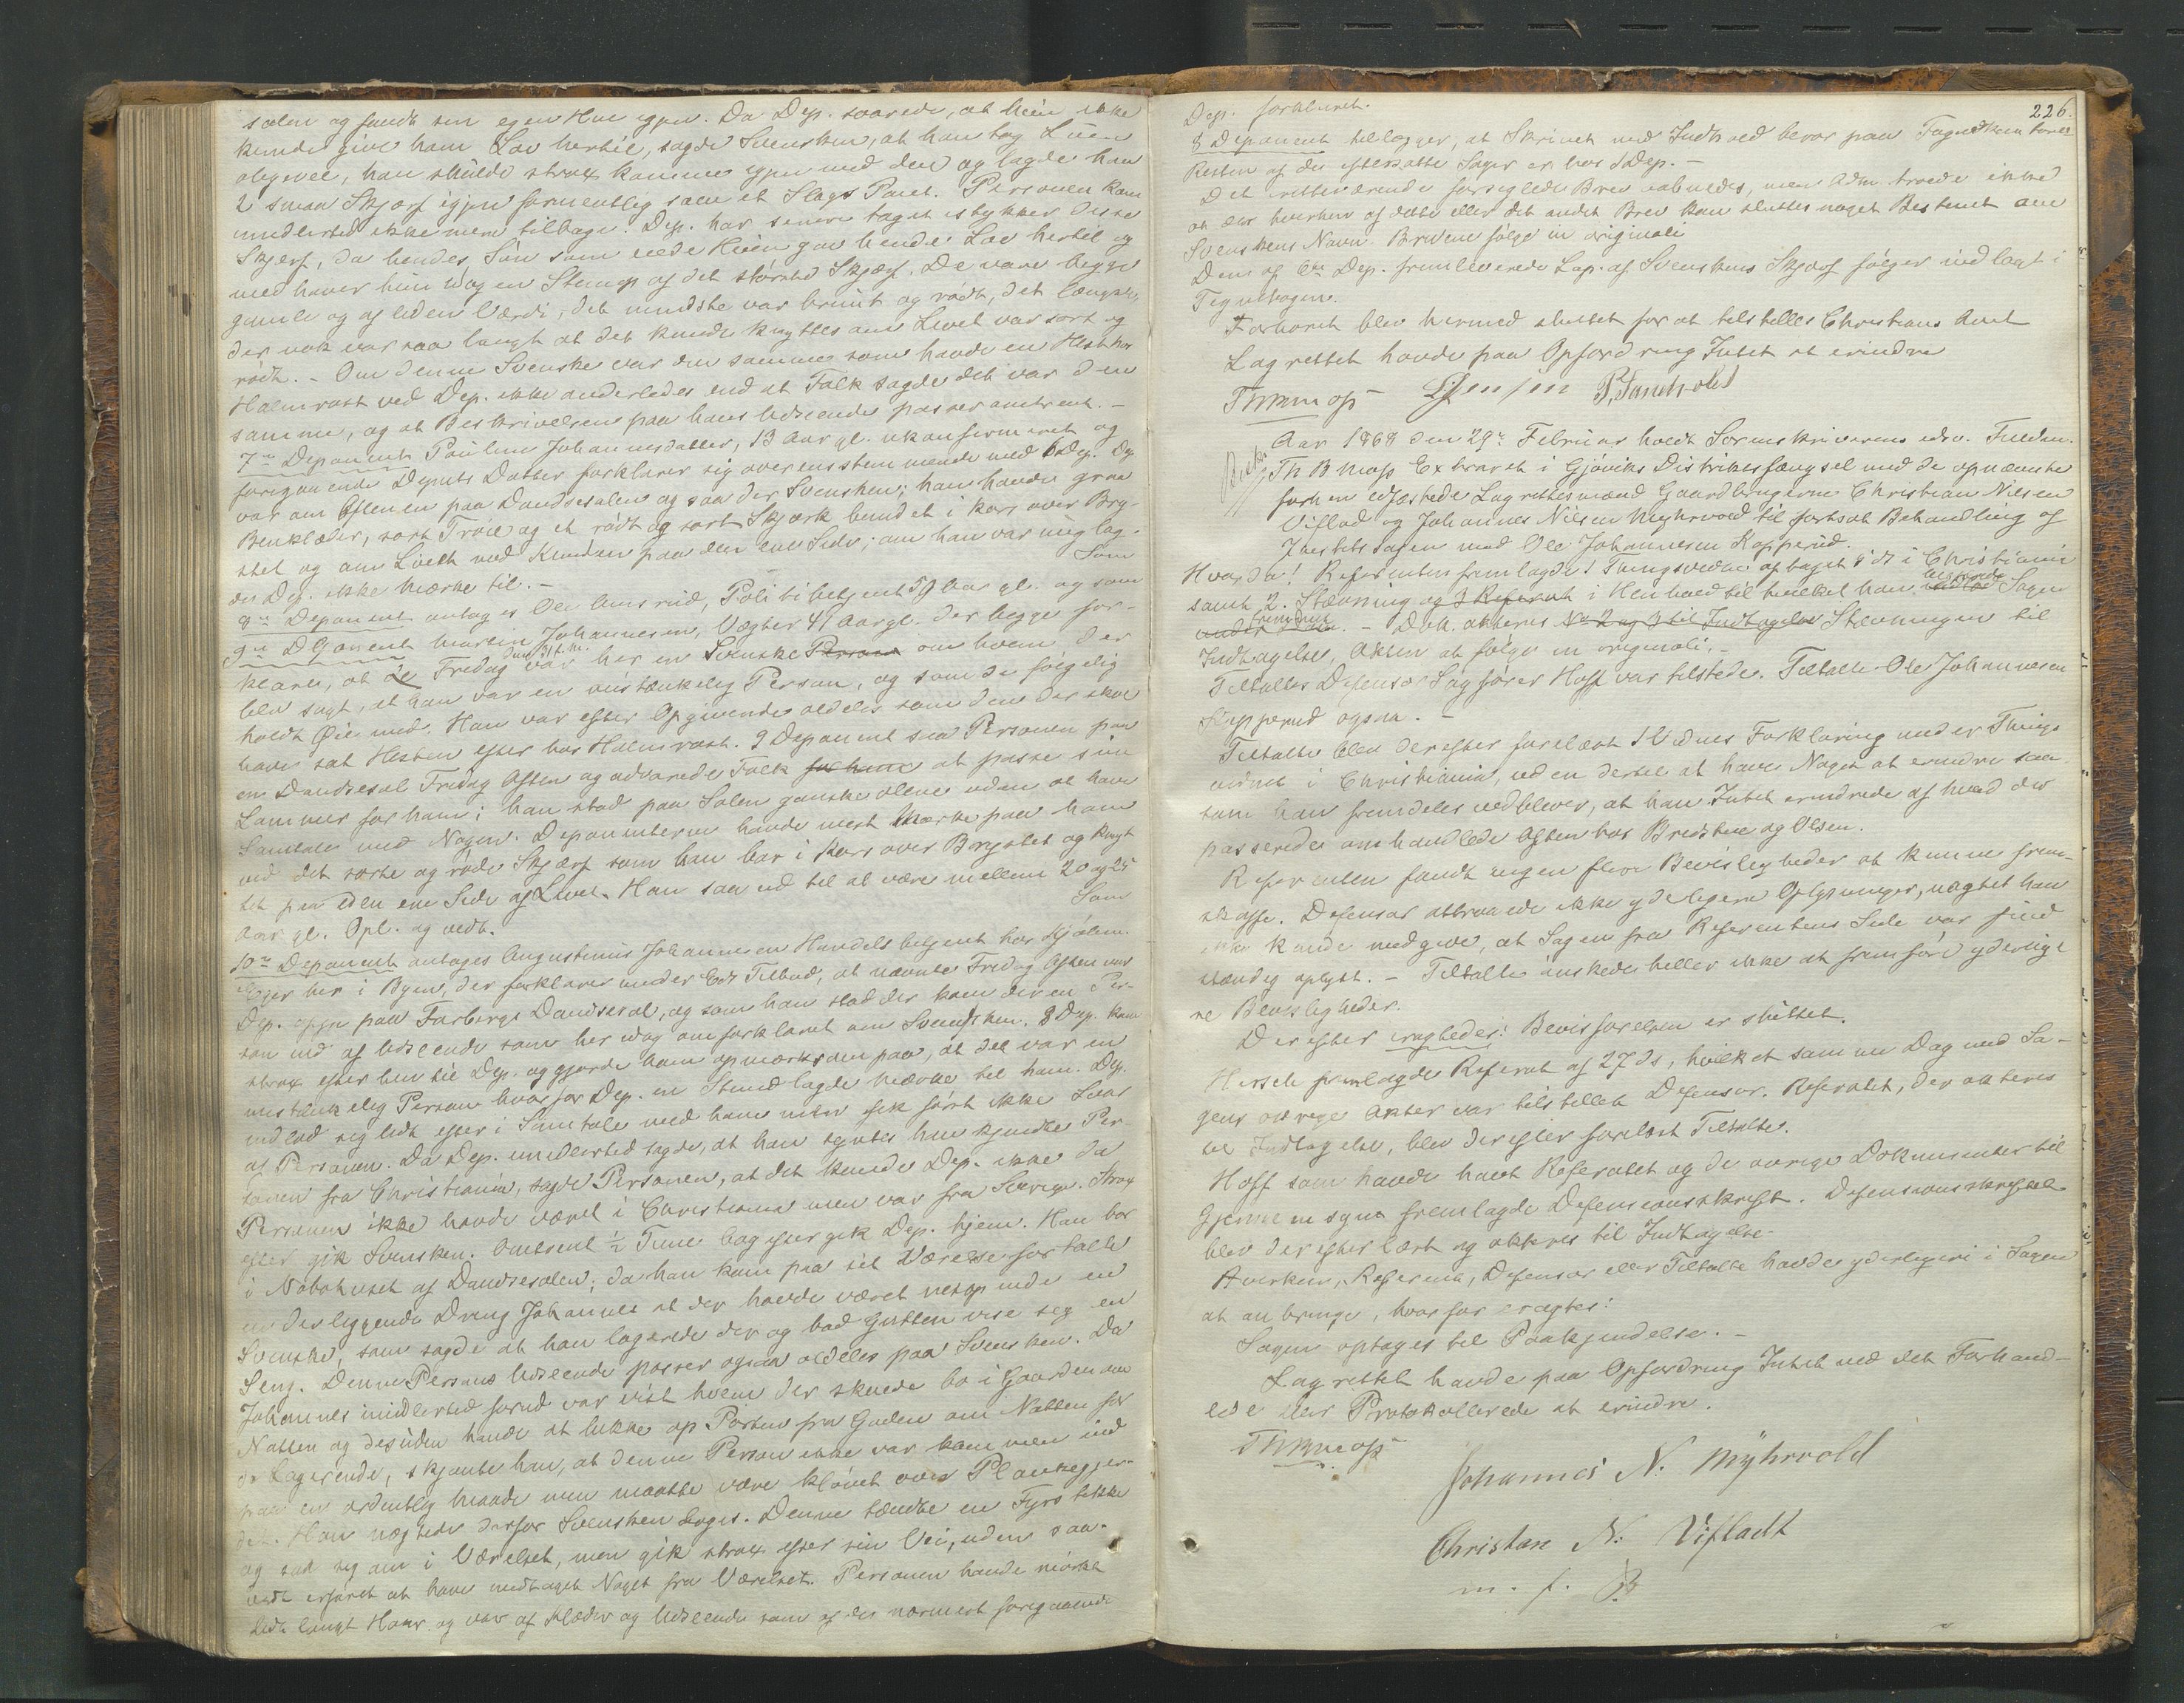 salen og fandt sin egen Hue igjen. Da Dep. svarede, at hun ikke
kunde give ham Lov hertil, sagde Svensken, at han tog Luen
alligevel, han skulde strax komme igjen med den og lagde han
2 smaa Skjærf igjen formentlig som et Slags Pant. Personen kom
imidlertid ikke mere tilbage. Dep. har senere taget istykker disse
Skjærf, da hendes Søn som eiede Huen gav hende Lov hertil og
medhaver hun idag en Stump af det største Skjærf. De vare begge
gamle og af liden Værdi, det mindste var brunt og rødt, det længste,
der nok var saa langt at det kunde knyttes om Livet var sort og
rødt. - Om denne Svenske var den samme som havde en Hest hos
Halmrast ved Dep. ikke anderledes end at Folk sagde det var den
samme, og at Beskrivelsen paa hans Udseende passer omtrent. -
7de Deponent Pauline Johannesdatter, 13 Aar gl. ukonfirmeret og
foregaaende Depnts Datter forklarer sig overensstemmende med 6 Dep. Dep
var om Aftenen paa Dandsesalen og saa der Svensken; han havde graa
Benklæder, sort Trøie og et rødt og sort Skjærf bundet i Kors over Bry-
stet og om Livet med Knuden paa den ene Side; om han var ung lag-
de Dep. ikke Mærke til. - Som
8de Deponent antages Ole Amsrud, Politibetjent 59 Aar gl. og som
9de Deponent Martin Johannesen, Vægter 41 Aar gl. der begge for-
klare, at de Fredag den 31 f. M. var her en Svenske Person om hvem der
blev sagt, at han var en mistænkelig Person, og som de følgelig
holdt Øie med. Han var efter Opgivende aldeles som den der skal
have sat Hesten efter hos Halmrast. 9 Deponent saa Personen paa
en Dandsesal Fredag Aften og advarede Folk for ham at passe sine
Lommer for ham; han stod paa Salen ganske alene uden at have
Samtale med Nogen. Deponenterne havde mest Mærke paa ham
ved det sorte og røde Skjærf som han bar i Kors over Brystet og knyt-
tet paa den ene Side af Livet. Han saa ud til at være mellem 20 og 25
Aar gl. Opl. og vedt. Som
10de Deponent antages Augustinus Johannesen Handelsbetjent hos Kjøbm.
Eger her i Byen, der forklarer under Eds Tilbud, at nævnte Fredag Aften var
Dep. oppe paa Farbergs Dandsesal, og som han stod der kom der en Per-
son ind af Udseende som her idag omforklaret om Svensken. 8 Dep. kom
strax efter hen til Dep. og gjorde ham opmærksom paa, at det var en
mistænkelig Person hvorfor Dep. en Stund lagde Mærke til ham. Dep.
indlod sig lidt efter i Samtale med ham men fik først ikke Svar
af Personen. Da Dep. imidlertid sagde, at han syntes han kjendte Per-
sonen fra Christiania, sagde Personen, at det kunde Dep. ikke da
Personen ikke havde været i Christiania men var fra Sverige. Strax
efter gik Svensken. Omtrent ½ Time bagefter gik Dep. hjem. Han bor
i Nabohuset af Dandsesalen; da han kom paa sit Værelse fortalte
en der liggende Dreng Johannes at der havde været netop inde en
Svenske, som sagde at han logerede der og bad Gutten vise sig en
Seng. Denne Persons Udseende passer ogsaa aldeles paa Svensken. Da
Johannes imidlertid forud var vist hvem der skulde bo i Gaarden om
Natten og desuden havde at lukke op Porten fra Gaden om Natten for
de Logerende, skjønte han, at denne Person ikke var kommen ind
paa en ordentlig Maade men maatte være kløvet over Plankegjer-
det. Han nægtede derfor Svensken Logis. Denne tændte en Fyrstikke
og saa sig om i Værelset, men gik strax efter sin Vei, uden saa-
vidt erfaret at have medtaget Noget fra Værelset. Personen havde mørkt
lidt langt Haar og var af Klæder og Udseende som af de nærmest foregaaende
226.
Dep. forklaret.
8 Deponent tillægger, at Skrinet med Indhold beror paa
Resten af de eftersatte Sager er hos Dep. -
Det rettenærende forseglede Brev aabnedes, men Adm. troede ikke
at der hverken af dette eller det andet Brev kan sluttes noget Bestemt om
Svenskens Navn. Brevene følge in originali
Dem af 6te Dep. fremleverede Lap. af Svenskens Skjærf følger indlagt i
Tegnebogen.
Forhøret blev hermed sluttet for at tilstilles Christians Amt
Lagrettet havde paa Opfordring Intet at erindre
ThBMoss
Aar 1868 den 29de Februar holdt Sorenskriverens edsv. Fuldm.
Th B Moss Extraret i Gjøviks Distriktsfængsel med de opnævnte
forhen edfæstede Lagrettesmænd Gaardbrugerne Christian Nilsen
Viflad og Johannes Nilsen Myhrvold til fortsat Behandling af
Justitssagen mod Ole Johannesen Kopperud.
Hvorda! Referenten fremlagde 1 Thingsvidne aftaget i Christiania
samt 2. Stævning og 3 Referat i Henhold til hvilket han Sagen
- Dok. akteres No 2 og 3 til Indtagelse Stevningen til
Indtagelse, Akten at følge in originali. -
Tiltaltes Defensor Sagfører Hoff var tilstede. Tiltalte Ole Johannesen
Kopperud ogsaa. -
Tiltalte blev derefter forelæst 1 Vidnes Forklaring under Things-
vidnet i Christiania, uden dertil at have Noget at erindre saa
som han fremdeles vedblever, at han Intet erindrede af hvad der
passerede omhandlede Aften hos Bredstue og Olsen.
Referenten fandt ingen flere Bevisligheder at kunne frem-
skaffe. Defensor attraaede ikke yderligere Oplysninger, uagtet han
ikke kunde medgive, at Sagen fra Referentens Side var fuld
stændig oplyst. - Tiltalte ønskede heller ikke at fremføre yderlige
re Bevisligheder.
Derefter eragtedes: Bevisførelsen er sluttet.
Hersch fremlagde Referat af 27 ds, hvilket samme Dag med Sa-
gens øvrige Akter var tilstillet Defensor. Referatet, der akteres
til Indtagelse, blev derefter forelæst Tiltalte.
Hoff som havde havt Referatet og de øvrige Dokumenter til
Gjennemsyn fremlagde Defensionsskrift. Defensionsskriftet
blev derefter læst og akteres til Indtagelse.
Hverken, Referent, Defensor eller Tiltalte havde yderligere i Sagen
at anbringe, hvorfor eragtes:
Sagen optages til Paakjendelse. -
Lagrettet havde paa Opfordring Intet ved det Forhand-
lede eller Protokollerede at erindre.
ThBMoss
Johannes N. Myhrvold
Christian N. Vifladt
m. f. P.